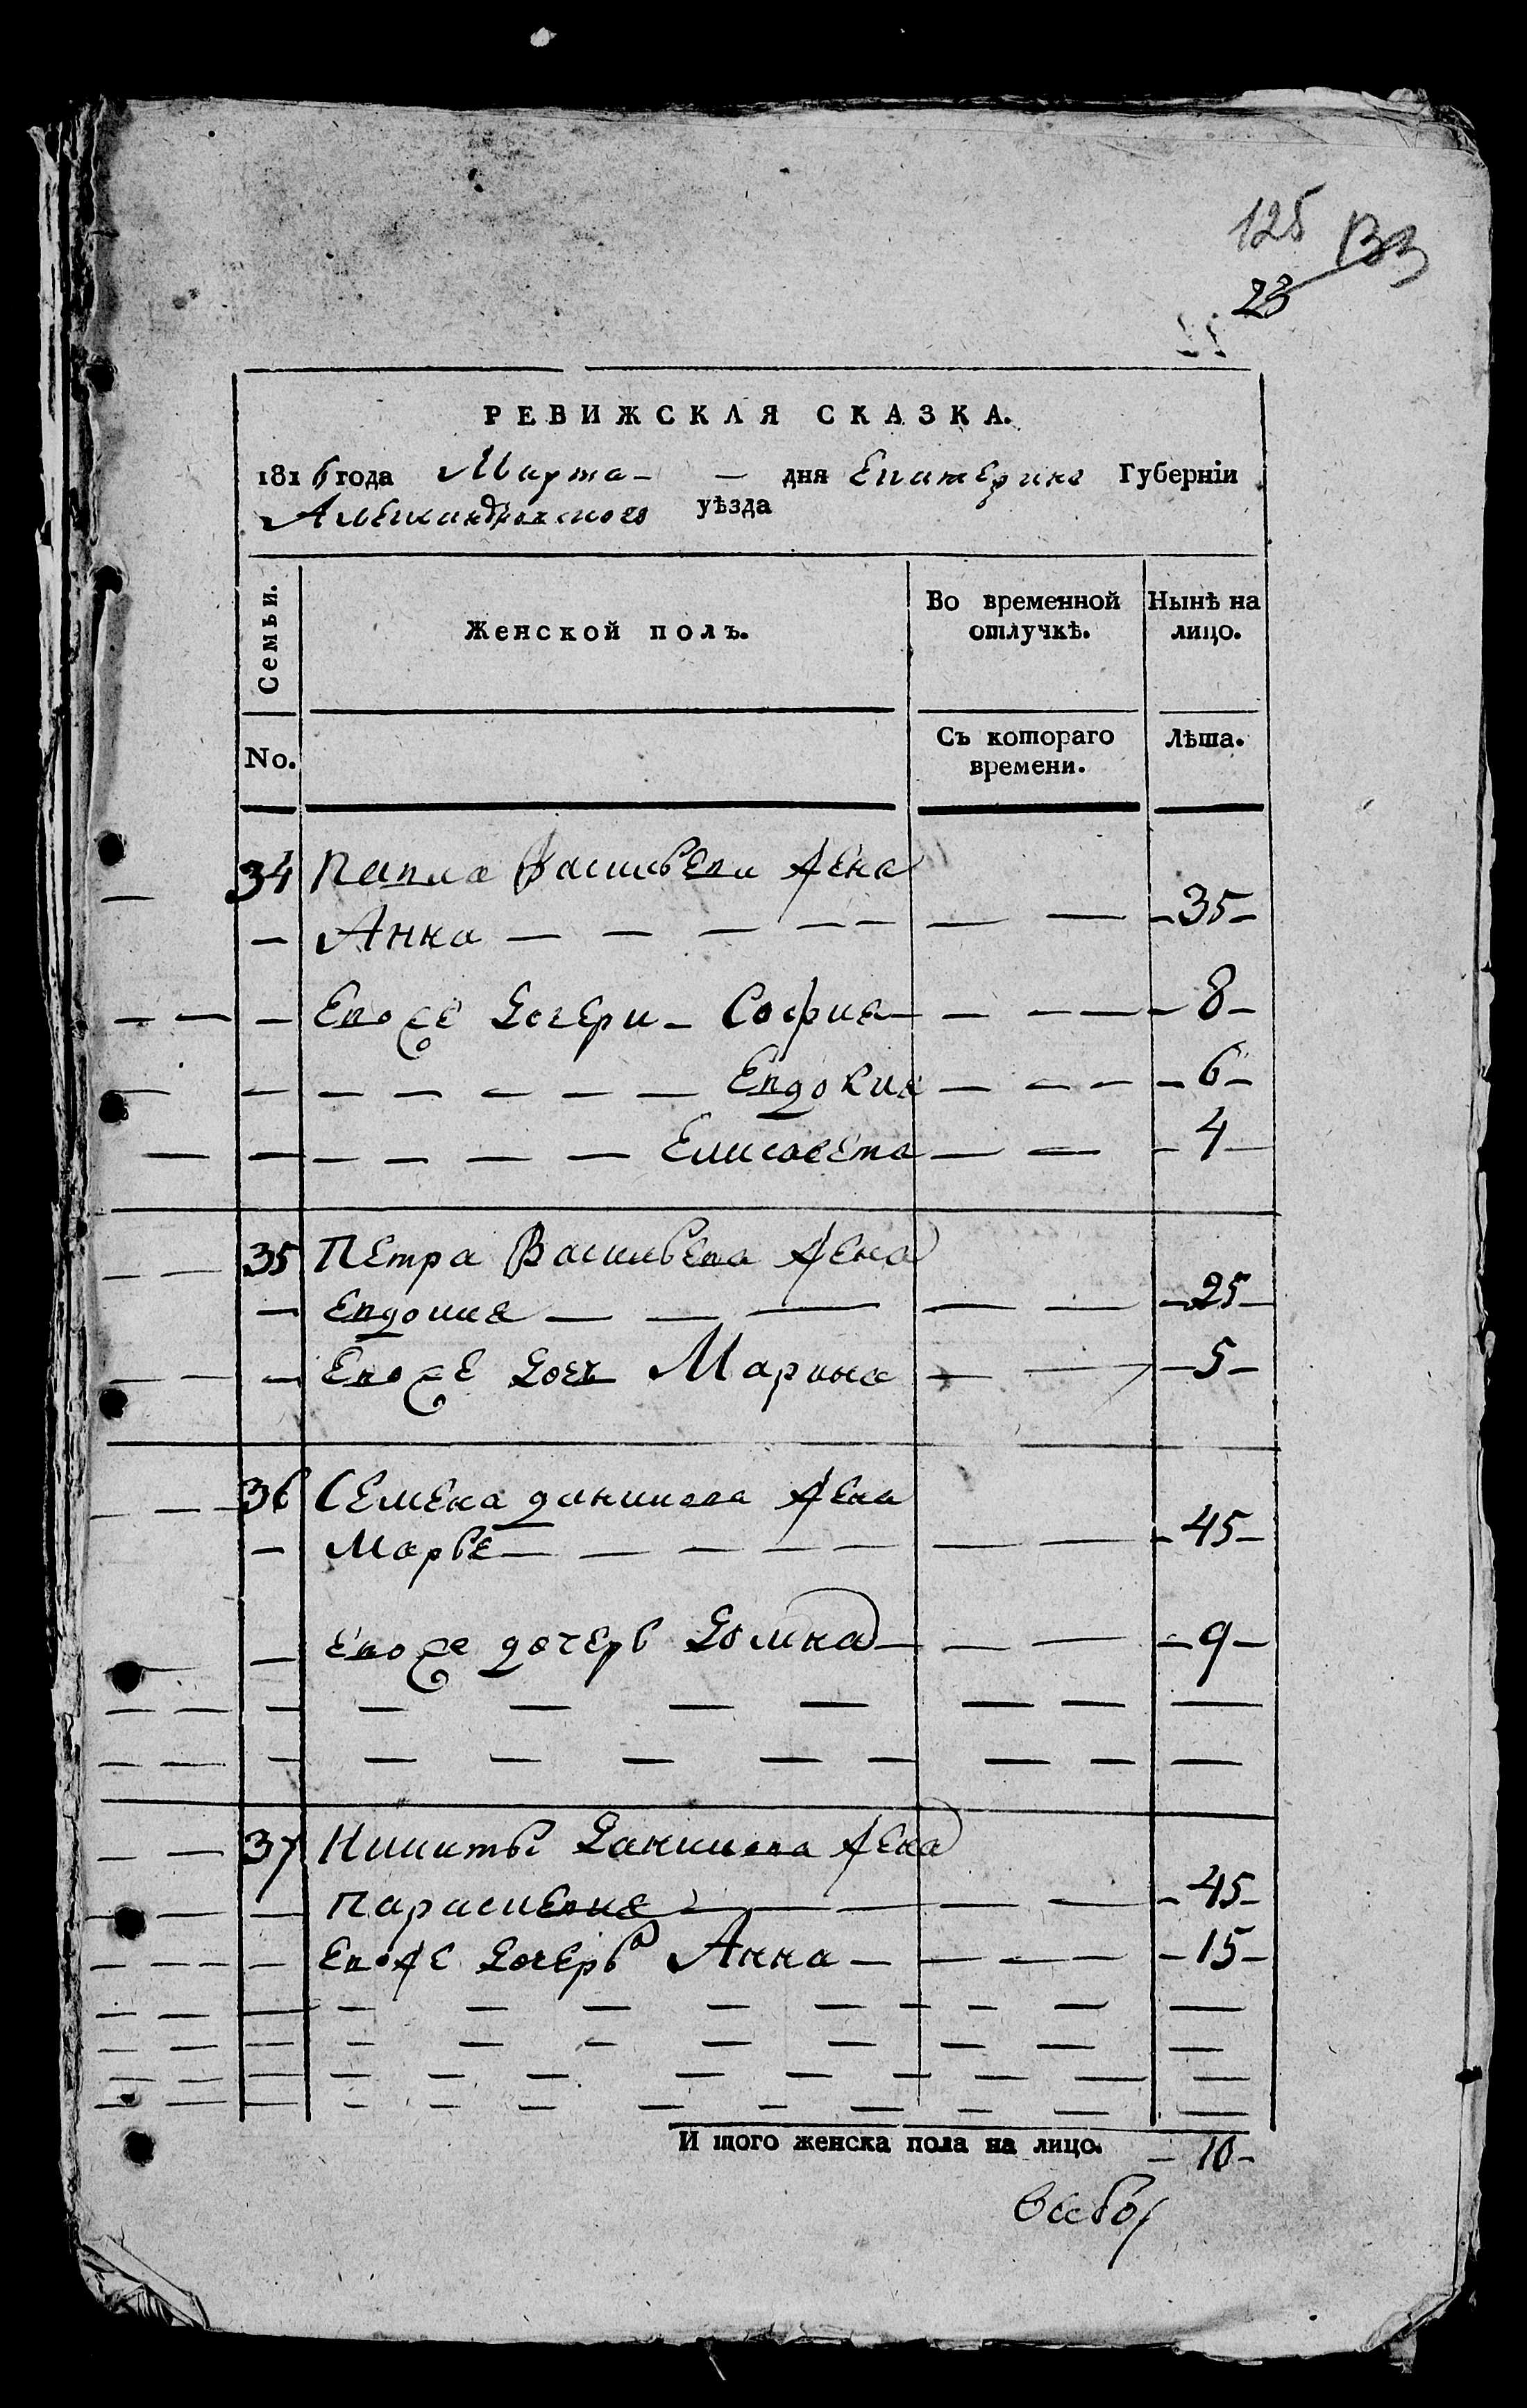 125 133
23
РЕВИЖСКАЯ СКАЗКА.
1816 года Марта — — дня Екатерино Губернiи
Александровского уѣзда
Семьи. Женской полъ. Во временной отлучкѣ. Нынѣ на лицо.
No. Съ котораго времени. Лѣта.
34 Павла Васильева жена
— Анна — — — — — — — -35-
— Евоже дочери — София — — — - 8 -
— — — — — — — Евдокия — — — - 6 -
— — — — — — Елисавета — — - 4 -
35 Петра Васильева жена
— Евдокия — — — — — -25-
— Евоже дочь Марина — — -5-
36 Семена данилова жена
— Марья — — — — — — — -45-
— евоже дочерь Домна — — — -9-
37 Никиты Данилова жена
— параскевия — — — — — -45-
— Евоже дочерь Анна — — — — -15-
И того женска пола на лицо. — 10 -